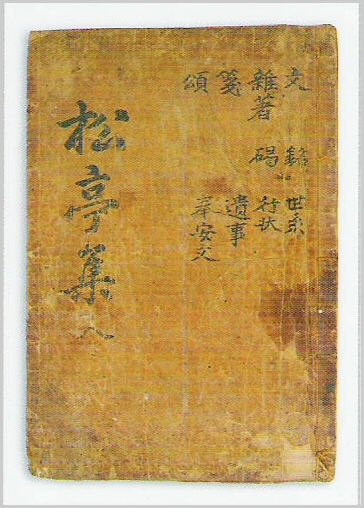 文 銘 世系
雜著 碣 行状
箋 遺事
頌 奉安文
松亭集